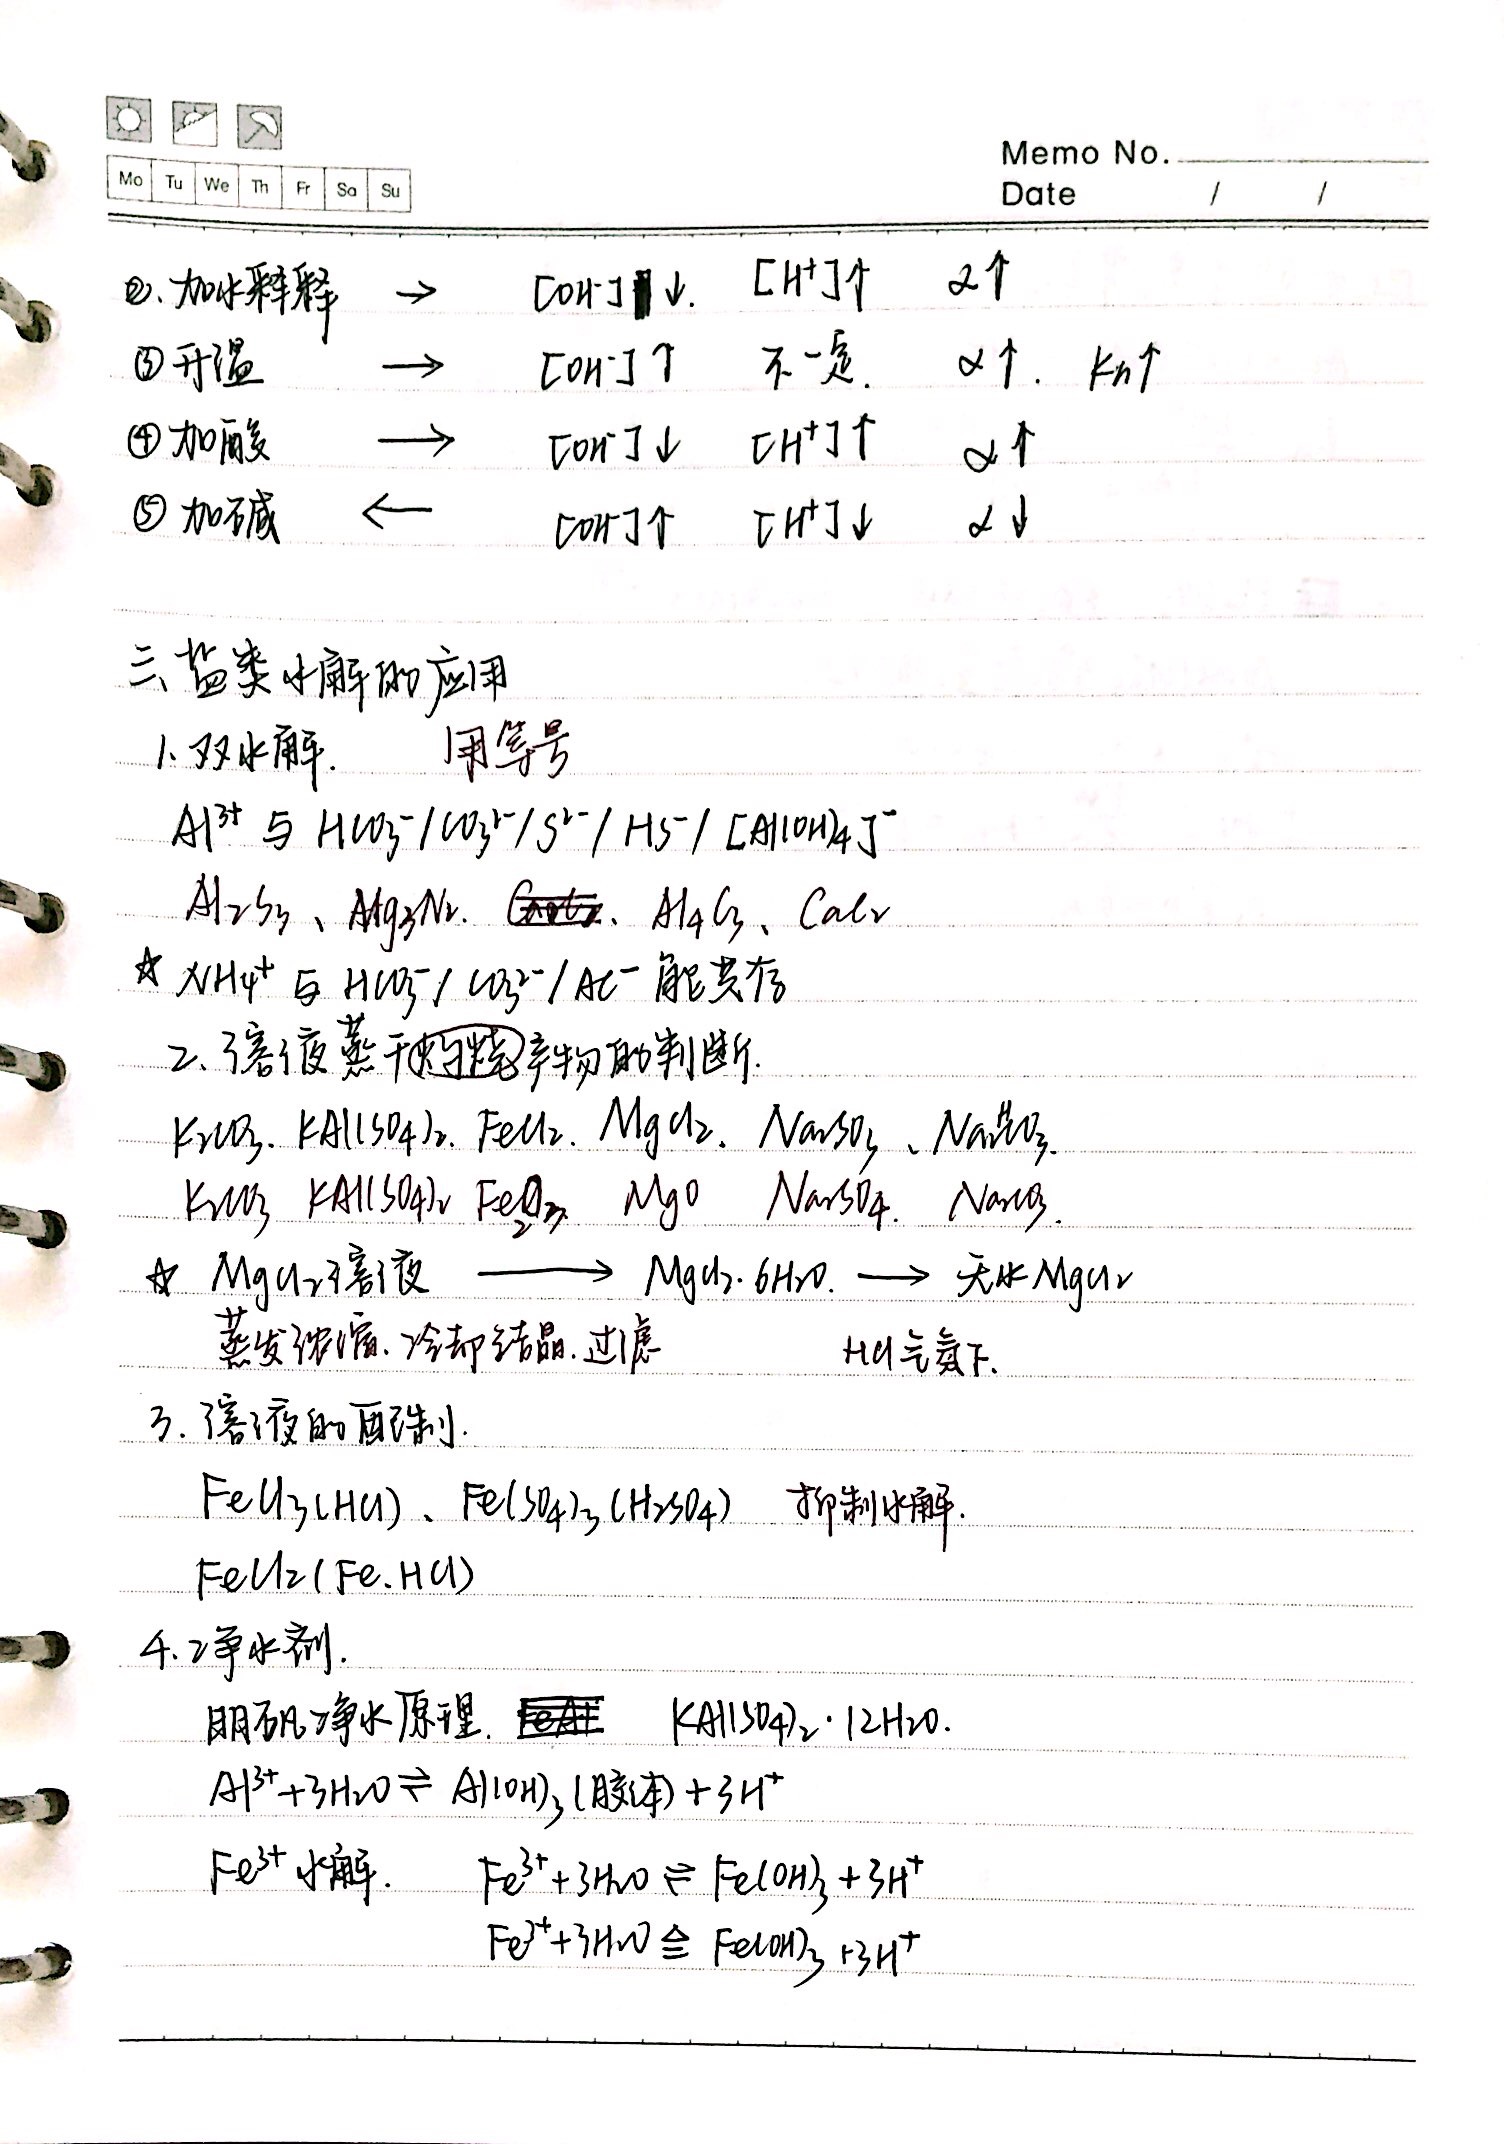 Memo No.
Mo Tu We Th Fr Sa Su
Date / /
②.加水释释 → [OH⁻]↓. [H⁺]↑ α↑
③升温 → [OH⁻]↑ 不一定. α↑. Kh↑
④加酸 → [OH⁻]↓ [H⁺]↑ α↑
⑤加碱 ← [OH⁻]↑ [H⁺]↓ α↓
三、盐类水解的应用
1、双水解. 用等号
Al³⁺与HCO₃⁻/CO₃²⁻/S²⁻/HS⁻/[Al(OH)₄]⁻
Al₂S₃、Mg₃N₂. Al₄C₃、CaC₂
☆ NH₄⁺与HCO₃⁻/CO₃²⁻/AC⁻能共存
2、溶液蒸干灼烧产物的判断.
K₂CO₃. KAl(SO₄)₂. FeCl₂. MgCl₂. Na₂SO₃、NaHCO₃.
K₂CO₃ KAl(SO₄)₂ Fe₂O₃ MgO Na₂SO₄. Na₂CO₃.
☆ MgCl₂溶液 → MgCl₂·6H₂O. → 无水MgCl₂
蒸发浓缩.冷却结晶.过滤 HCl气氛下.
3.溶液的配制.
FeCl₃(HCl)、Fe(SO₄)₃(H₂SO₄) 抑制水解.
FeCl₂(Fe.HCl)
4.净水剂.
明矾净水原理. KAl(SO₄)₂·12H₂O.
Al³⁺+3H₂O⇌Al(OH)₃(胶体)+3H⁺
Fe³⁺水解. Fe³⁺+3H₂O⇌Fe(OH)₃+3H⁺
Fe³⁺+3H₂O≙Fe(OH)₃+3H⁺